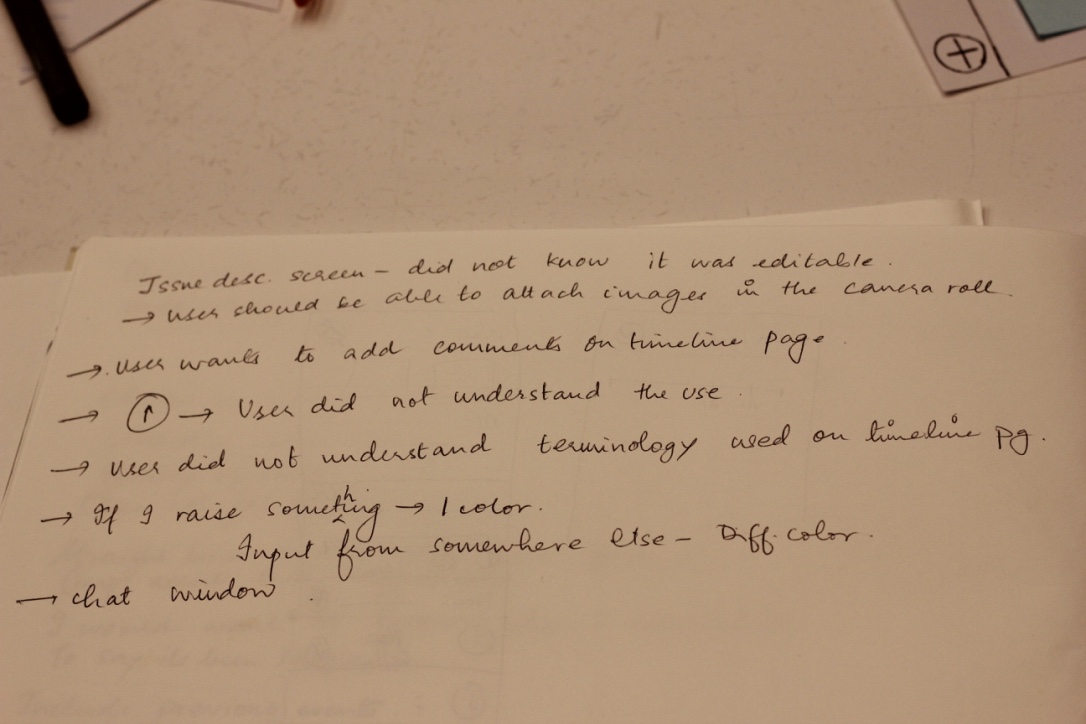 Issue desc. screen – did not know it was editable.
→ User should be able to attach images in the camera roll.
→ User wants to add comments on timeline page.
→ ↑ → User did not understand the use.
→ User did not understand terminology used on timeline pg.
→ If I raise something → 1 color.
Input from somewhere else – Diff. color.
→ chat window.